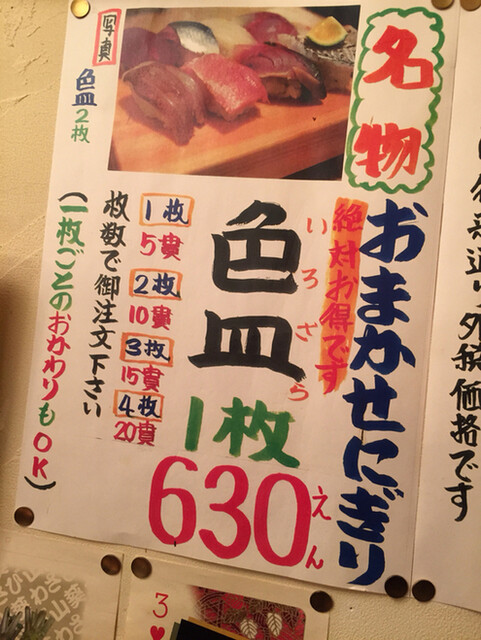 名物
おまかせにぎり
絶対お得です
いろざら
色皿
1枚
630
えん
1枚
5貫
2枚
10貫
3枚
15貫
4枚
20貫
枚数で御注文下さい
(一枚ごとのおかわりもOK)
写真
色皿2枚
外税価格です
3